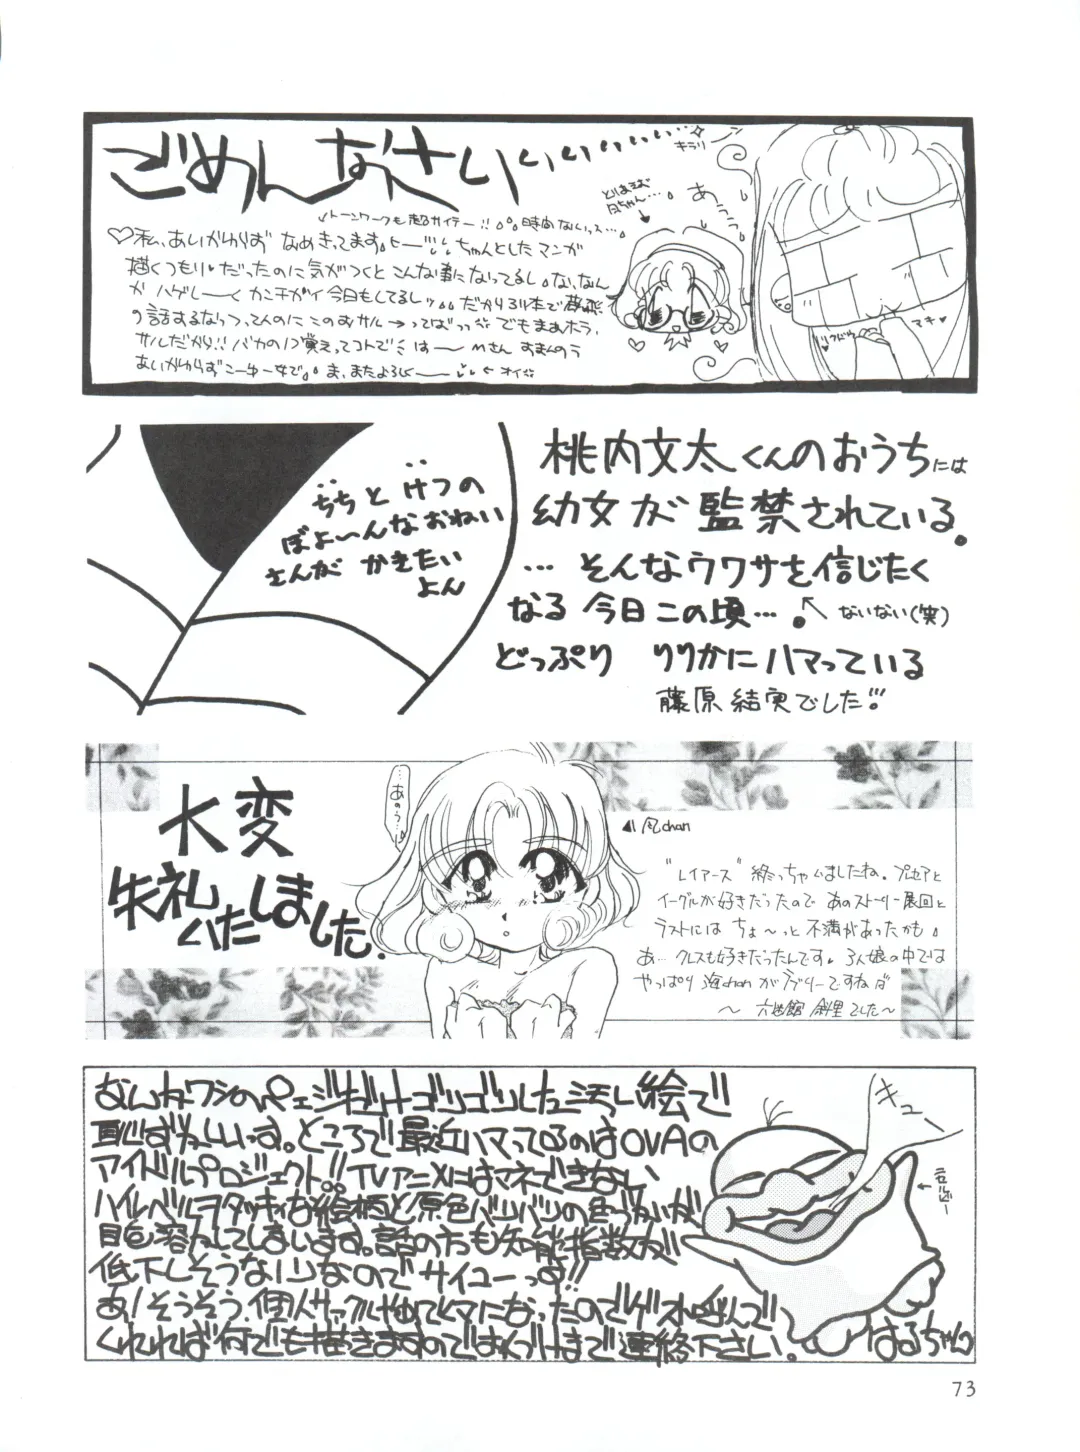 ごめんなさいぃぃぃぃ……
キラリーン
とりあえず
風ちゃん…
あうぅぅ
↙トーンワークも超サイテー!! 時間ないっス…
♡私、あいかわらず なめきってます。ヒー ちゃんとしたマンガ
描くつもりだったのに気がつくと こんな事になってるし。な、なん
か ハゲしーく カンチガイ 今日もしてるしッ。だから
話するなっつってんのに このおサルーってばっっ でもまぁホラ、
サルだから!! バカの1つ覚えってコトで はー Mさん すまんのう
あいかわらずこーゆー女で。ま、またよろしくー ←オイ
マキ♥
ちちと けつの
ぼよ〜んなおねい
さんが かきたい
よん
桃内文太くんのおうちには
幼女が 監禁されている。
… そんなウワサを信じたく
なる 今日この頃…。
↖ないない(笑)
どっぷり りりかにハマっている
藤原 結実でした!!
大変
失礼
いたしました。
…あのう…
◀風chan
"レイアース" 終っちゃいましたね。プセアと
イーグルが好きだったので あのストーリー展開と
ラストには ちょ〜っと 不満があったかも。
あ… クレスも好きだったんです。3人娘の中では
やっぱり 海chan が ラブリーですわねぱ
〜 六道館 斜里でした〜
なんかワシのページだけゴリゴリした汚い絵で
恥ずかしいっす。ところで最近ハマってるのはOVAの
アイドルプロジェクト!! TVアニメにはマネできない
ハイレベルヲタッキィな絵柄と原色バリバリの色づかいが
目を溶かしてしまいます。話の方も知能指数が
低下しそうなノリなのでサイコーっす!!
あ!そうそう、個人サークルやめてヒマになったのでゲスト呼んで
くれれば何でも描きますのではんづけまで連絡下さい。
キュー
←ラルビー
はるちゃん
73